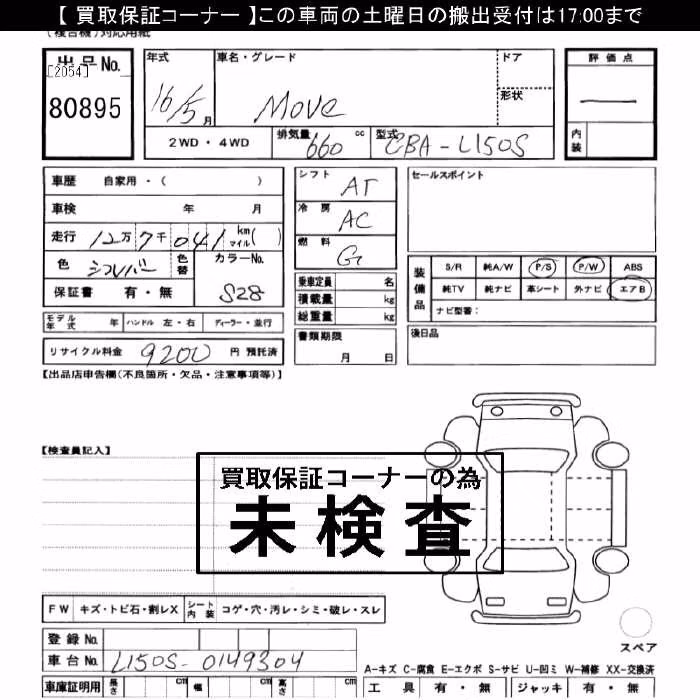 【 買取保証コーナー 】この車両の土曜日の搬出受付は17:00まで
(複合機)対応用紙
出品No.
[2054]
80895
年式
16/5月
車名・グレード
MOVE
ドア
形状
2WD・4WD
排気量 660 cc
型式 CBA-L150S
評価点
―
内装
車歴 自家用・( )
車検 年 月
走行 12万7千041 km マイル( )
色 シルバー 色替 カラーNo.
S28
保証書 有・無
モデル年式 年 ハンドル 左・右 ディーラー・並行
リサイクル料金 9200 円 預託済
シフト AT
冷房 AC
燃料 G
乗車定員 名
積載量 kg
総重量 kg
書類期限
月 日
セールスポイント
装備品
S/R 純A/W P/S P/W ABS
純TV 純ナビ 革シート 外ナビ エアB
ナビ型番:
後日品
【出品店申告欄(不良箇所・欠品・注意事項等)】
【検査員記入】
買取保証コーナーの為
未検査
FW キズ・トビ石・割レX シート内装 コゲ・穴・汚レ・シミ・破レ・スレ
登録No.
車台No. L150S-0149304
車庫証明用 長さ cm 幅 cm 高さ cm
スペア
A-キズ C-腐食 E-エクボ S-サビ U-凹ミ W-補修 XX-交換済
工具 有・無 ジャッキ 有・無